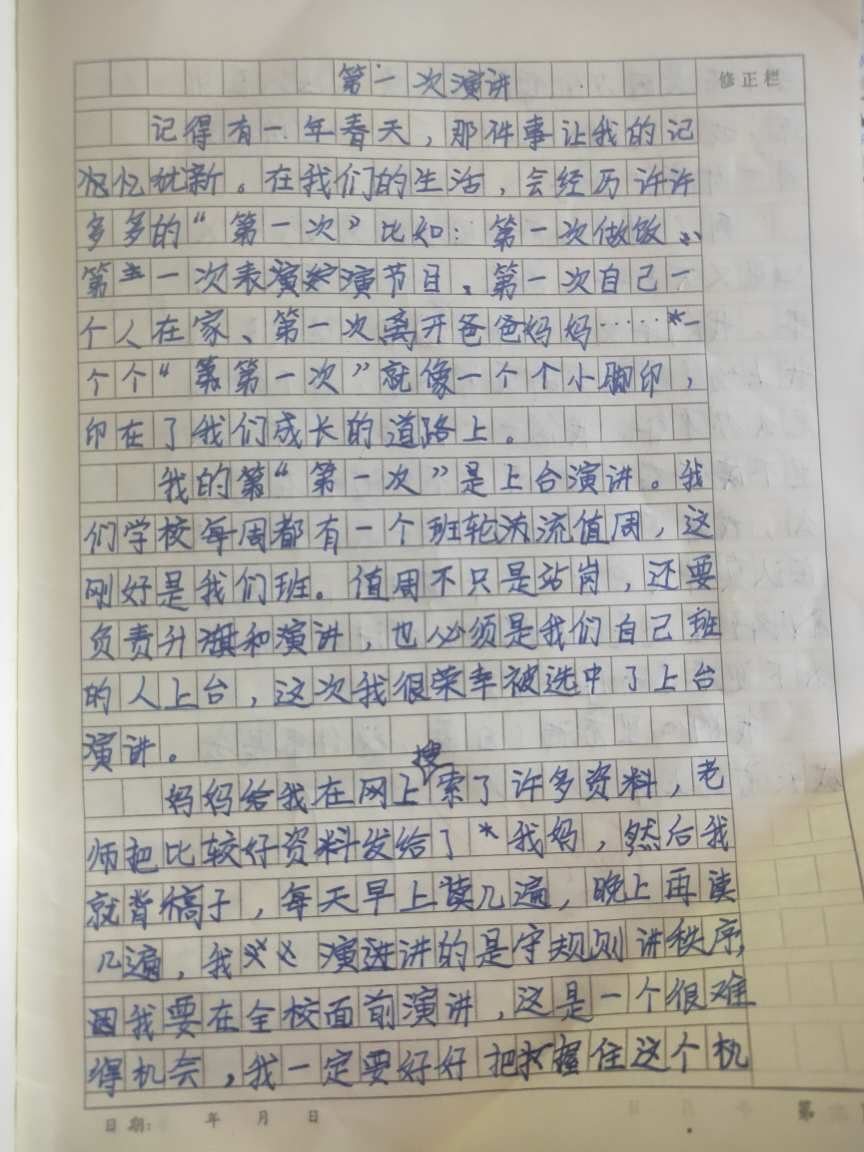 第一次演讲
修正栏
记得有一年春天，那件事让我的记
忆忧新。在我们的生活，会经历许许
多多的“第一次”比如：第一次做饭、
第一次表演演节目、第一次自己一
个人在家、第一次离开爸爸妈妈……一
个个“第一次”就像一个个小脚印，
印在了我们成长的道路上。
我的第“第一次”是上台演讲。我
们学校每周都有一个班轮流值周，这
刚好是我们班。值周不只是站岗，还要
负责升旗和演讲，也必须是我们自己班
的人上台，这次我很荣幸被选中了上台
演讲。
妈妈给我在网上搜索了许多资料，老
师把比较好资料发给了我妈，然后我
就背稿子，每天早上读几遍，晚上再读
几遍，我演讲的是守规则讲秩序，
因我要在全校面前演讲，这是一个很难
得机会，我一定要好好把握住这个机
日期： 年 月 日
第